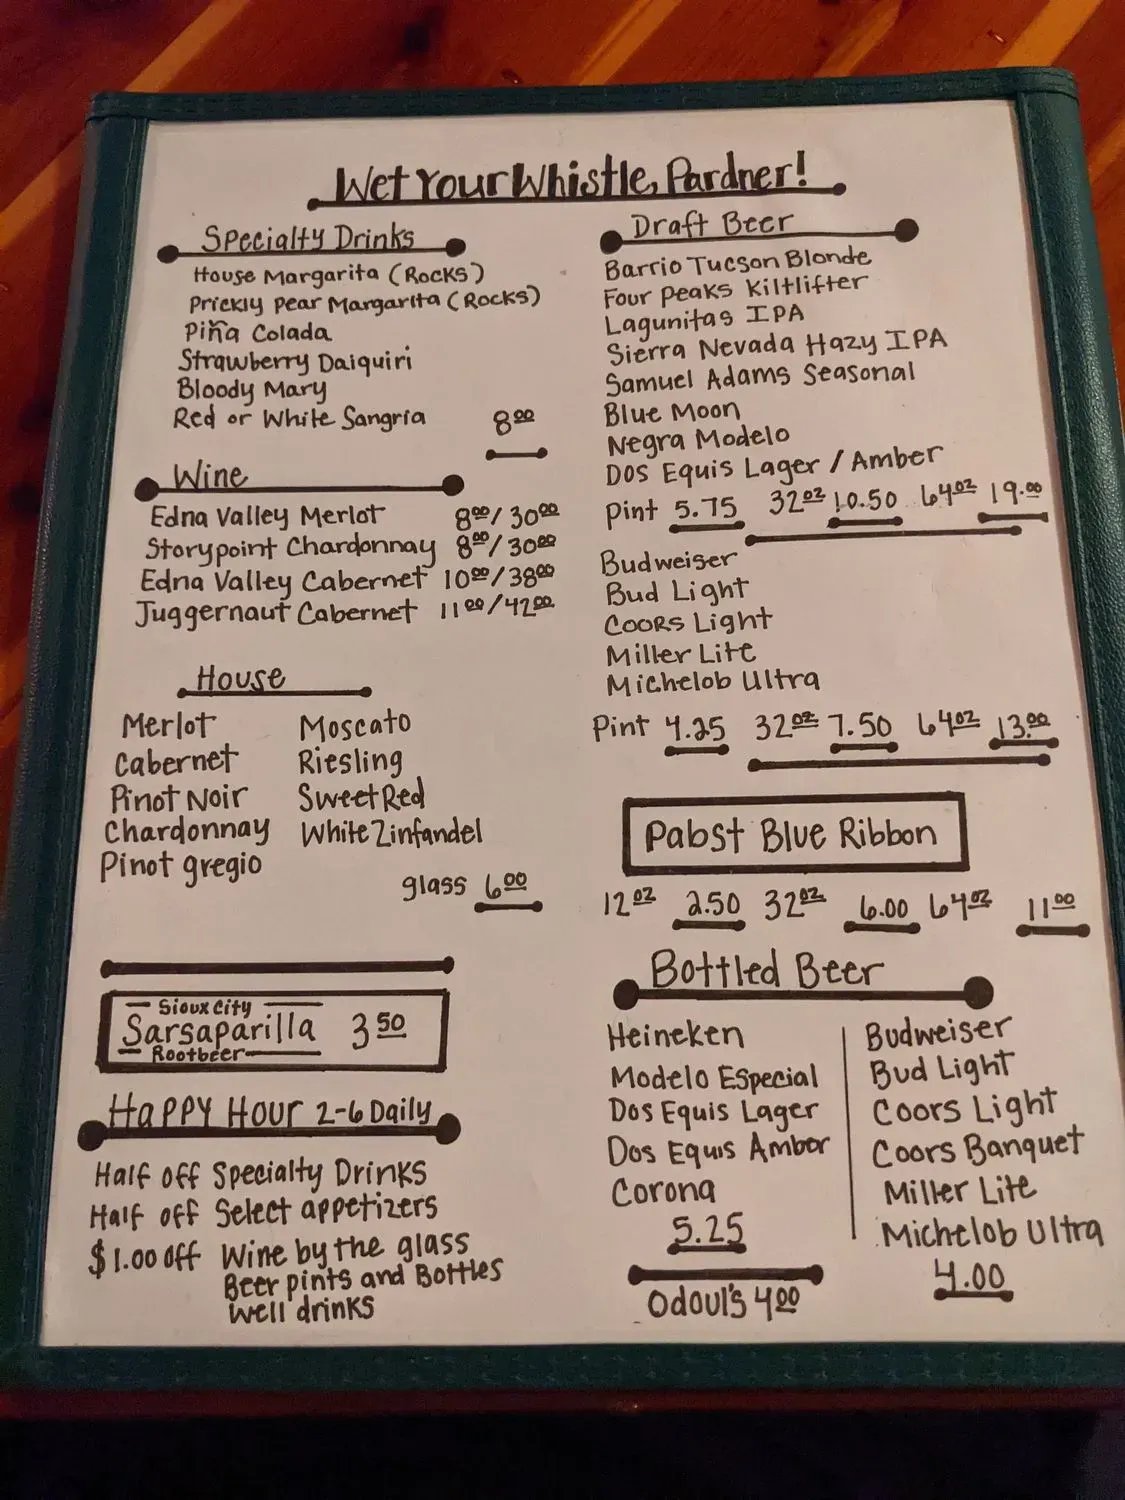 Wet Your Whistle, Pardner!
Specialty Drinks
House Margarita (Rocks)
Prickly Pear Margarita (Rocks)
Piña Colada
Strawberry Daiquiri
Bloody Mary
Red or White Sangria 8.00
Wine
Edna Valley Merlot 8.00/30.00
Storypoint Chardonnay 8.00/30.00
Edna Valley Cabernet 10.00/38.00
Juggernaut Cabernet 11.00/42.00
House
Merlot Moscato
Cabernet Riesling
Pinot Noir Sweet Red
Chardonnay White Zinfandel
Pinot gregio
glass 6.00
Sioux City
Sarsaparilla 3.50
Rootbeer
Happy Hour 2-6 Daily
Half off Specialty Drinks
Half off Select appetizers
$1.00 off Wine by the glass
Beer pints and Bottles
Well drinks
Draft Beer
Barrio Tucson Blonde
Four Peaks Kiltlifter
Lagunitas IPA
Sierra Nevada Hazy IPA
Samuel Adams Seasonal
Blue Moon
Negra Modelo
Dos Equis Lager / Amber
Pint 5.75 32oz 10.50 64oz 19.00
Budweiser
Bud Light
Coors Light
Miller Lite
Michelob Ultra
Pint 4.25 32oz 7.50 64oz 13.00
Pabst Blue Ribbon
12oz 2.50 32oz 6.00 64oz 11.00
Bottled Beer
Heineken
Modelo Especial
Dos Equis Lager
Dos Equis Amber
Corona
5.25
Odoul's 4.00
Budweiser
Bud Light
Coors Light
Coors Banquet
Miller Lite
Michelob Ultra
4.00